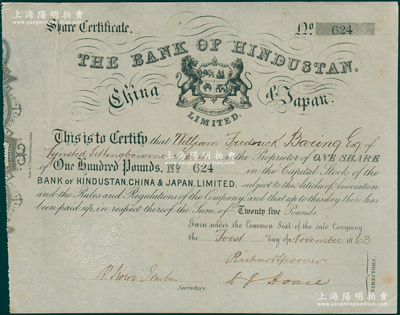 上海陽明拍賣
Share Certificate.
No 624
THE BANK OF HINDUSTAN.
China & Japan.
LIMITED.
This is to Certify that William Frederick Baring Esq of
the Proprietor of ONE SHARE
of One Hundred Pounds. No 624 in the Capital Stock of the
BANK OF HINDUSTAN, CHINA & JAPAN, LIMITED. subject to the Articles of Association
and the Rules and Regulations of the Company and that up to this day there has
been paid up in respect thereof the Sum of Twenty five Pounds.
Given under the Common Seal of the said Company
the First day of November 1863
Secretary.
DIRECTORS.
上海陽明拍賣